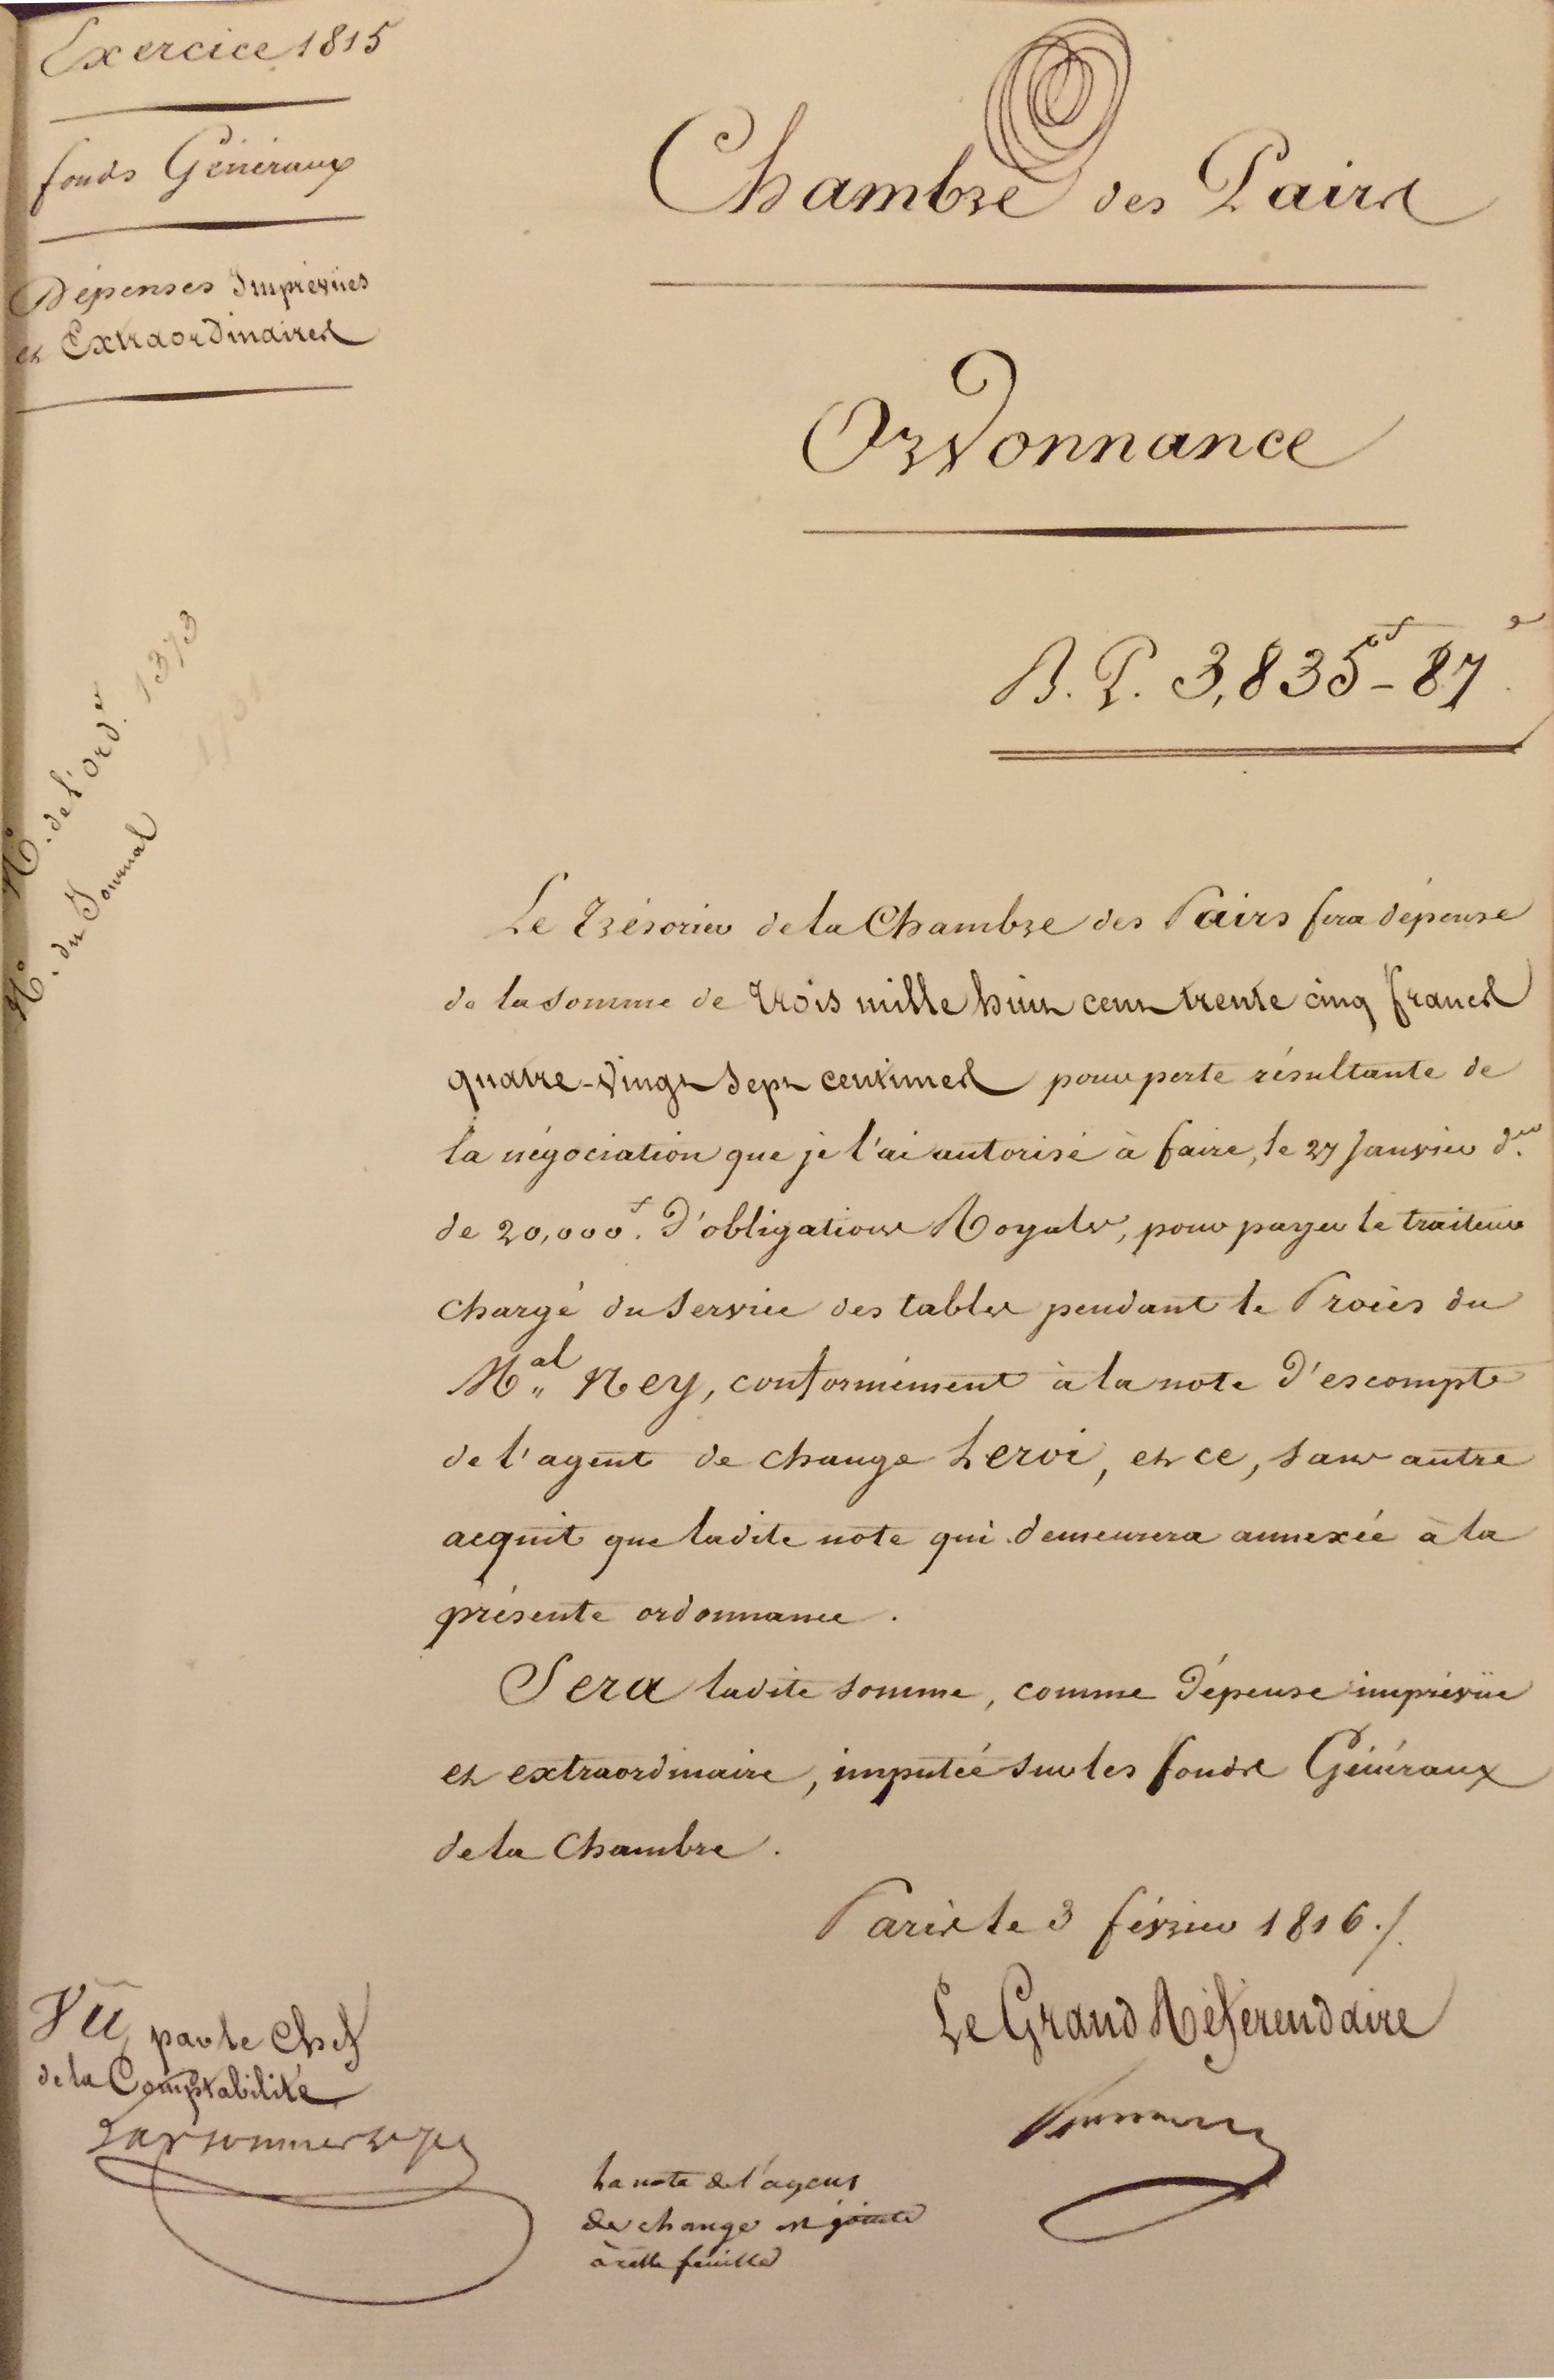 Exercice 1815
fonds Généraux
Dépenses Imprévues
et Extraordinaires
Chambre des Pairs
Ordonnance
B. P. 3,835 f - 87 c
N.° de l'Ord.ce 1373
N.° du Journal
Le Trésorier de la Chambre des Pairs fera dépense
de la somme de trois mille huit cent trente cinq francs
quatre-vingt sept centimes pour perte résultante de
la négociation que je l'ai autorisé à faire, le 27 Janvier d.er
de 20,000 f. d'obligations Royales, pour payer le traiteur
chargé du service des tables pendant le Procès du
M.al Ney, conformément à la note d'escompte
de l'agent de change Leroi, et ce, sans autre
acquit que ladite note qui demeurera annexée à la
présente ordonnance.
Sera ladite somme, comme dépense imprévüe
et extraordinaire, imputée sur les fonds Généraux
de la Chambre.
Paris le 3 février 1816./.
Le Grand Référendaire
Vû par le Chef
de la Comptabilité
La note de l'agent
de change est jointe
à cette feuille